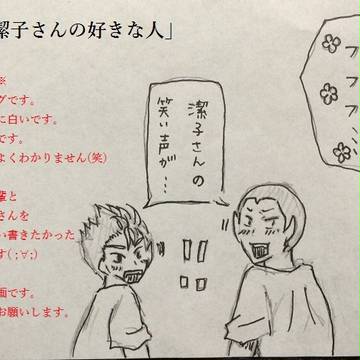 潔子さんの好きな人」
※
グです。
に白いです。
です。
よくわかりません(笑)
輩と
さんを
い書きたかった
す( ;∀;)
画です。
お願いします。
フフフ
潔子さんの
笑い声が…